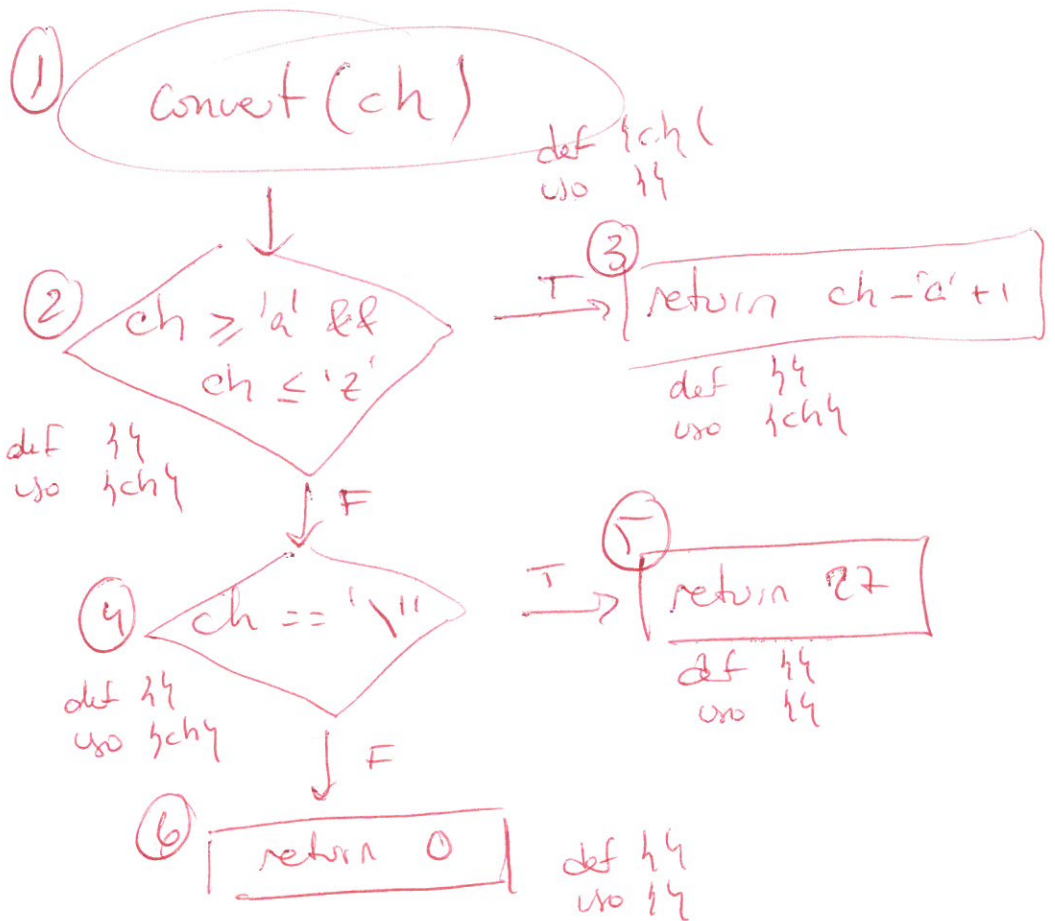 1
convert (ch)
def {ch}
uso {}
2
ch ≥ 'a' &&
ch ≤ 'z'
def {}
uso {ch}
T
3
return ch - 'a' + 1
def {}
uso {ch}
F
4
ch == '\''
def {}
uso {ch}
T
5
return 27
def {}
uso {}
F
6
return 0
def {}
uso {}